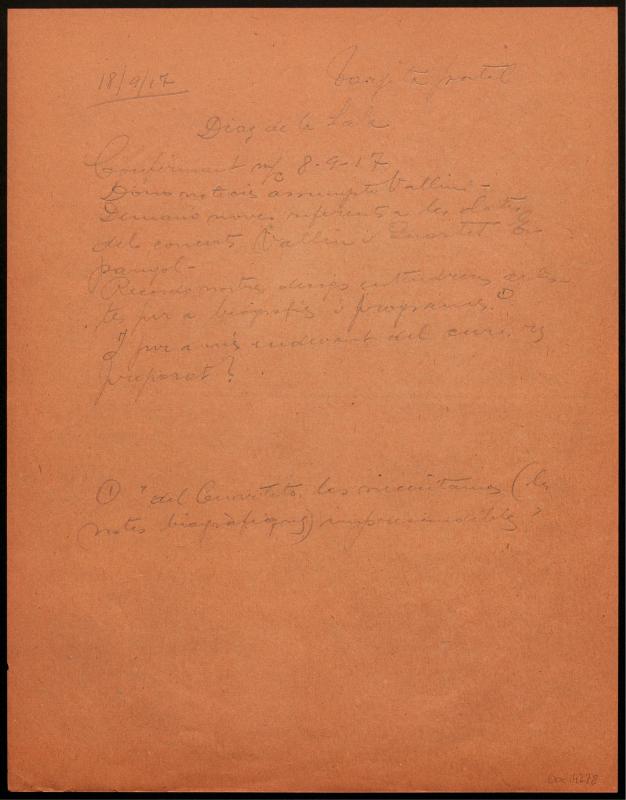 18/9/17 Tarjeta postal
Diaz de la Sala
Confirmant m/c 8-9-17
Dono noticies assumpte Vallin -
Demano noves referents a les dates
dels concerts Vallin i Quartet Es
panyol -
Recordo nostres desigs
tes per a biografies i programes. ①
I per a més endavant del curs, res
preparat?
① "del Cuarteto, las necesitamos (les
notes biogràfiques) imprescindibles"
Doc 14278